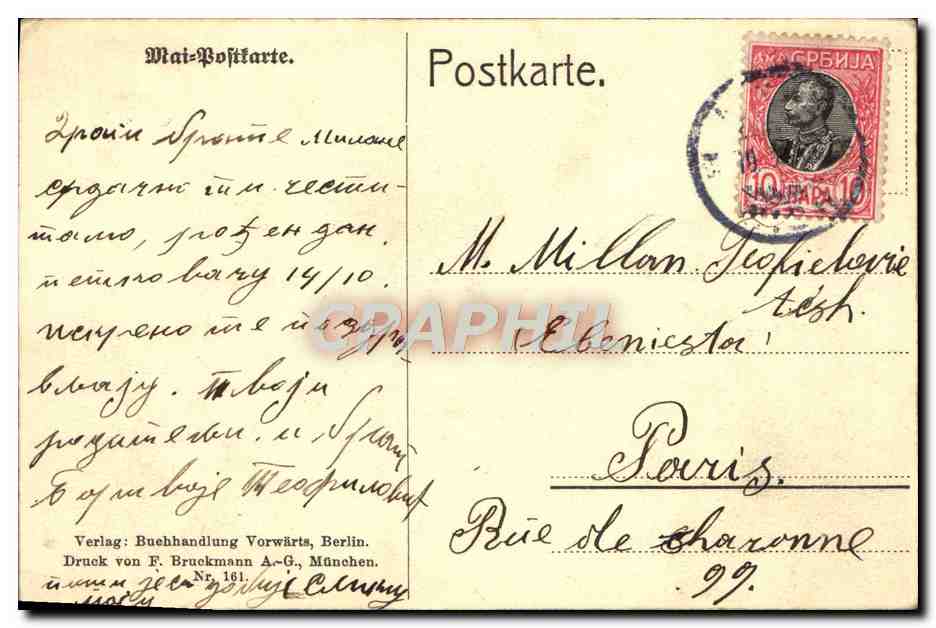 Mai=Postkarte.
Драги брате Милане
срдачно ти чести-
тамо, рођендан.
14/10.
искрено те поздра-
вљају. твоји
родитељи. и брат
Боривоје Теофиловић
Verlag: Buchhandlung Vorwärts, Berlin.
Druck von F. Bruckmann A.-G., München.
Nr. 161.
Postkarte.
СРБИЈА
10 ПАРА 10
M. Millan. Teofielovie
Ebeniesta
Paris.
Rue de charonne
99.
CRAPHIL